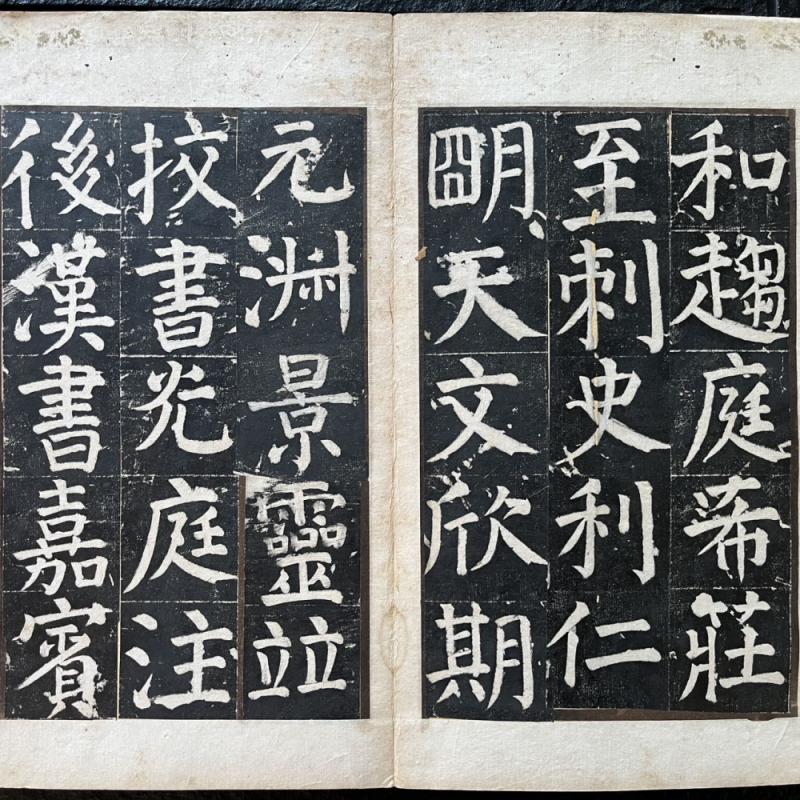 和趨庭希莊
至刺史利仁
朙天文欣期
元淵景靈竝
挍書光庭注
後漢書嘉賓